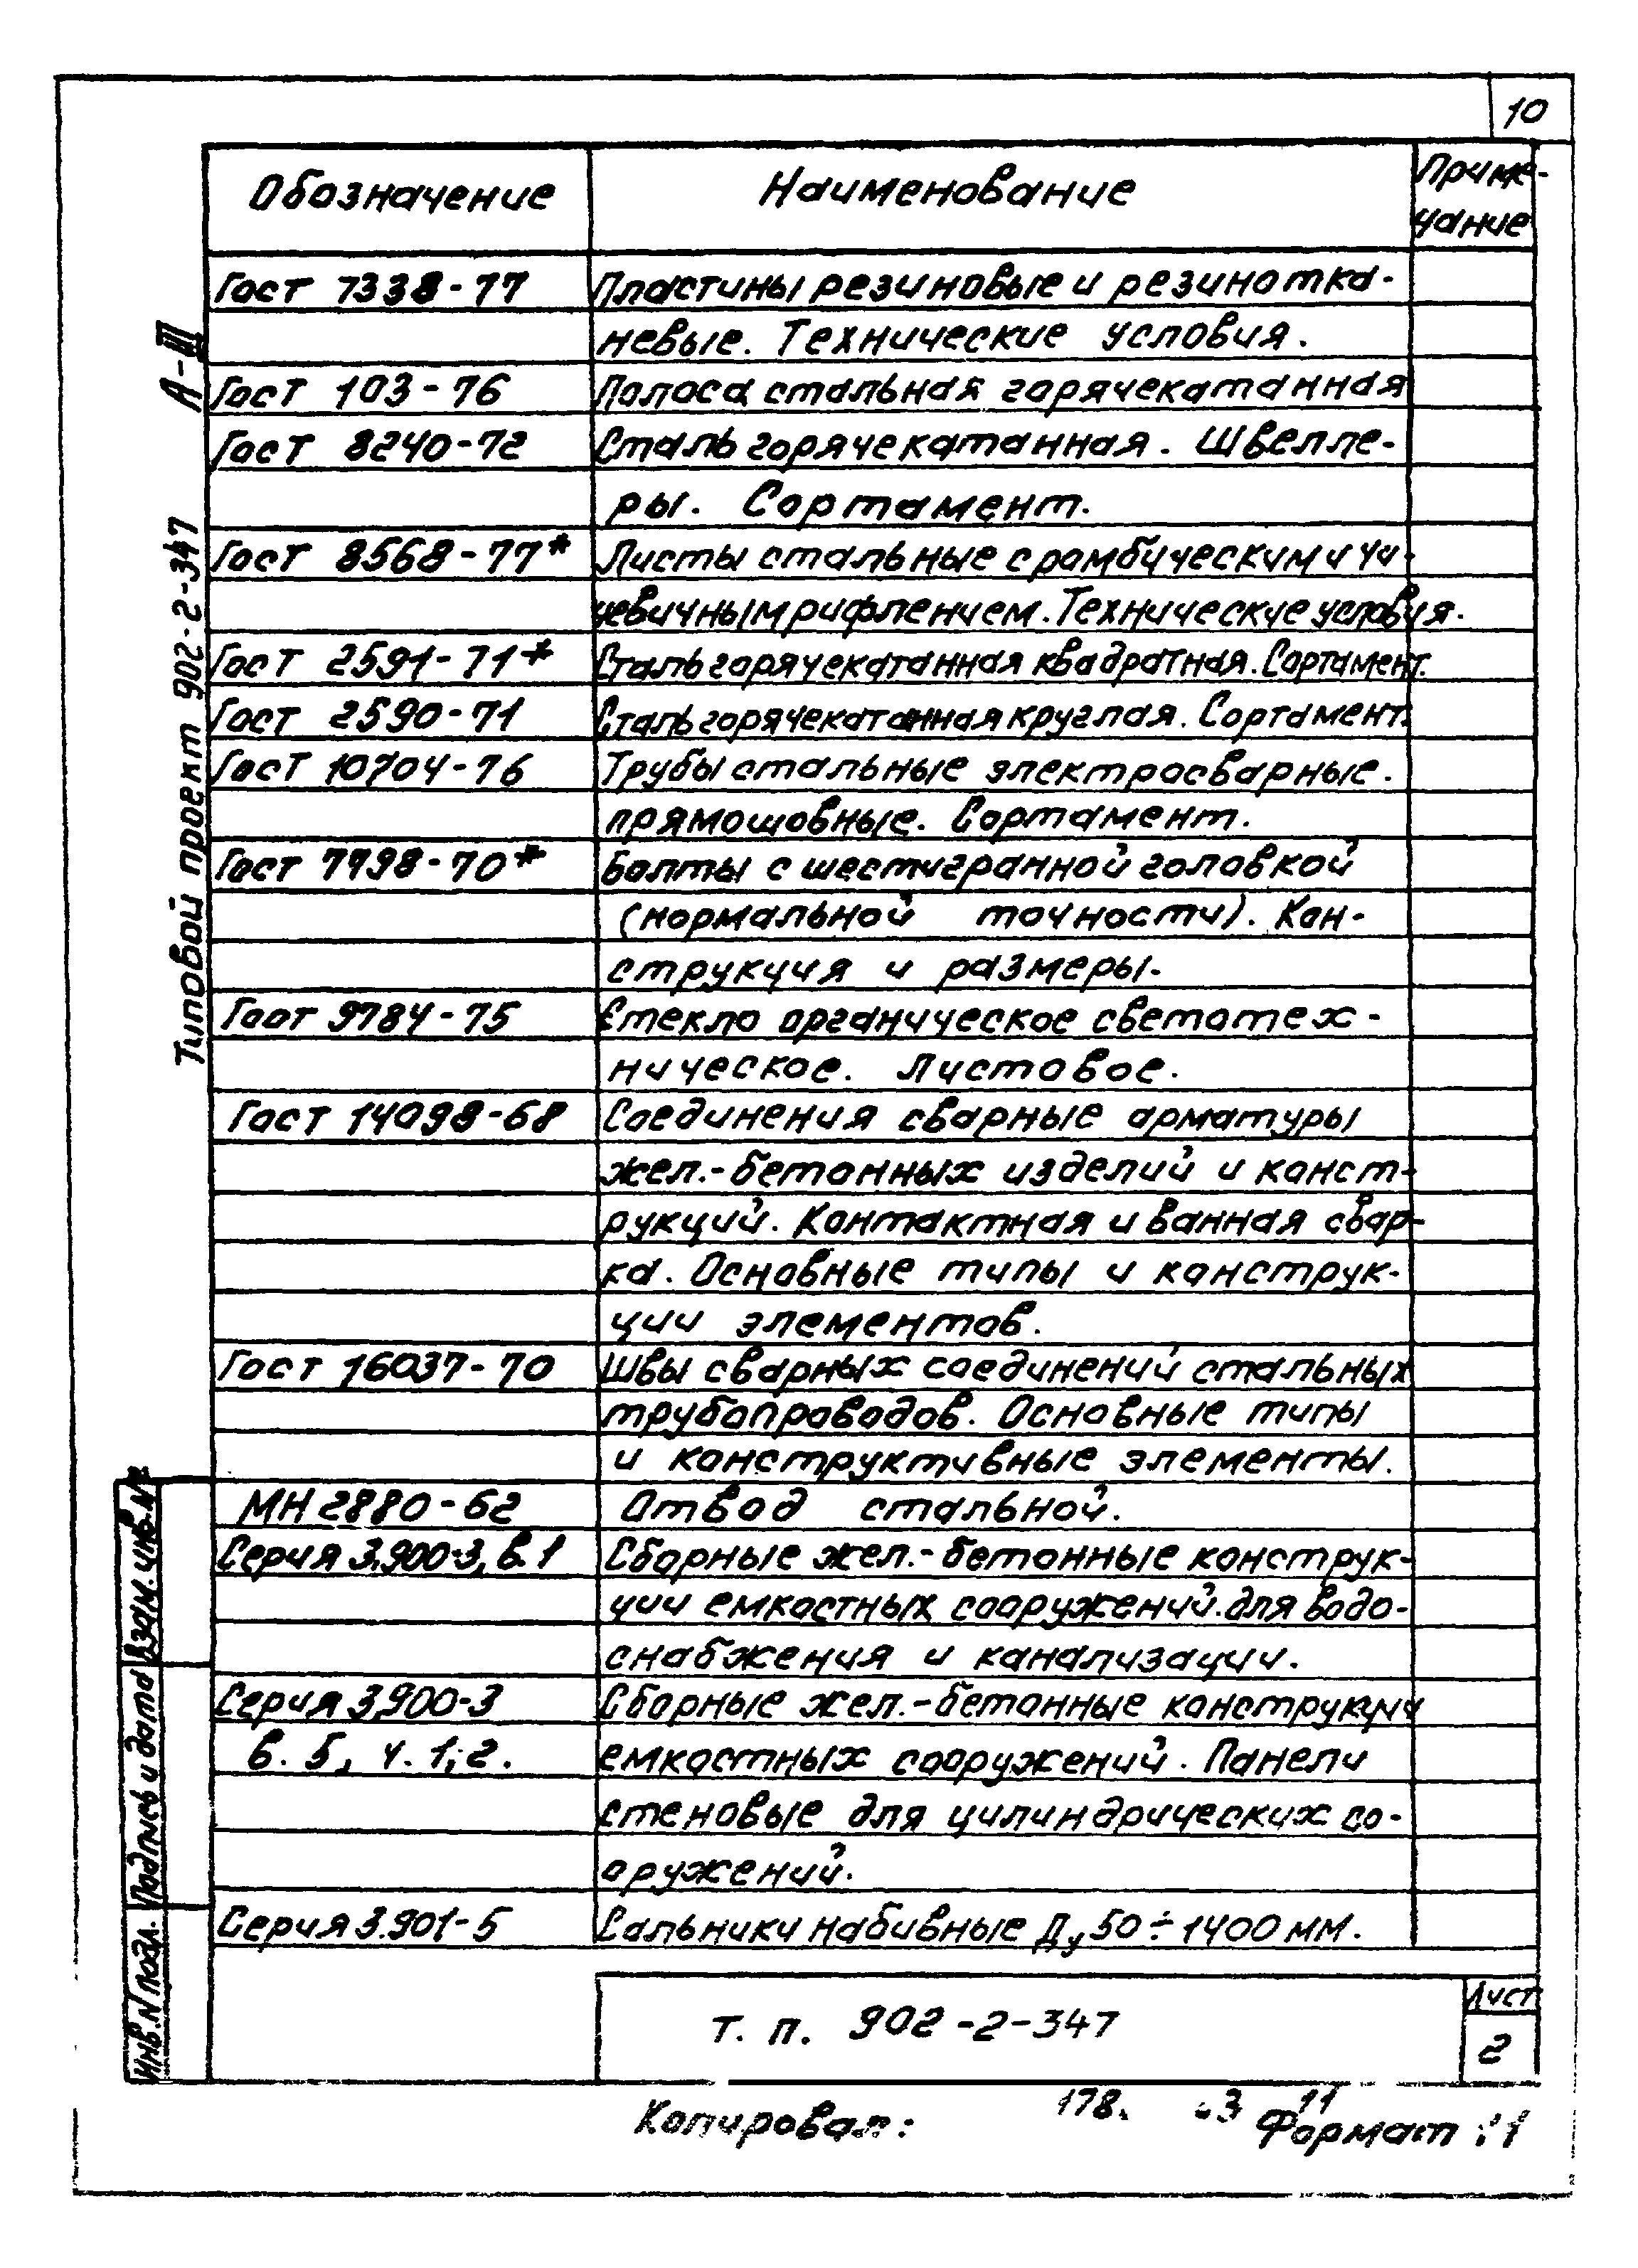 10
Обозначение Наименование Приме-
чание
Гост 7338-77 Пластины резиновые и резинотка-
невые. Технические условия.
Гост 103-76 Полоса стальная горячекатанная
Гост 8240-72 Сталь горячекатанная. Швелле-
ры. Сортамент.
Гост 8568-77* Листы стальные с ромбическим и чи-
чевичным рифлением. Технические условия.
Гост 2591-71* Сталь горячекатанная квадратная. Сортамент.
Гост 2590-71 Сталь горячекатанная круглая. Сортамент.
Гост 10704-76 Трубы стальные электросварные.
прямошовные. Сортамент.
Гост 7798-70* Болты с шестигранной головкой
(нормальной точности). Кон-
струкция и размеры.
Гост 9784-75 Стекло органическое светотех-
ническое. Листовое.
Гост 14098-68 Соединения сварные арматуры
жел.-бетонных изделий и конст-
рукций. Контактная и ванная свар-
ка. Основные типы и конструк-
ции элементов.
Гост 16037-70 Швы сварных соединений стальных
трубопроводов. Основные типы
и конструктивные элементы.
МН 2880-62 Отвод стальной.
Серия 3.900-3, в.1 Сборные жел.-бетонные конструк-
ции емкостных сооружений для водо-
снабжения и канализации.
Серия 3.900-3 Сборные жел.-бетонные конструкции
в. 5, ч. 1; 2. емкостных сооружений. Панели
стеновые для цилиндрических со-
оружений.
Серия 3.901-5 Сальники набивные Ду 50÷1400 мм.
т. п. 902-2-347
Лист
2
Копировал: 178. 11
Формат
Типовой проект 902-2-347 А-III
Взам. инв. №
Подпись и дата
Инв. N подл.